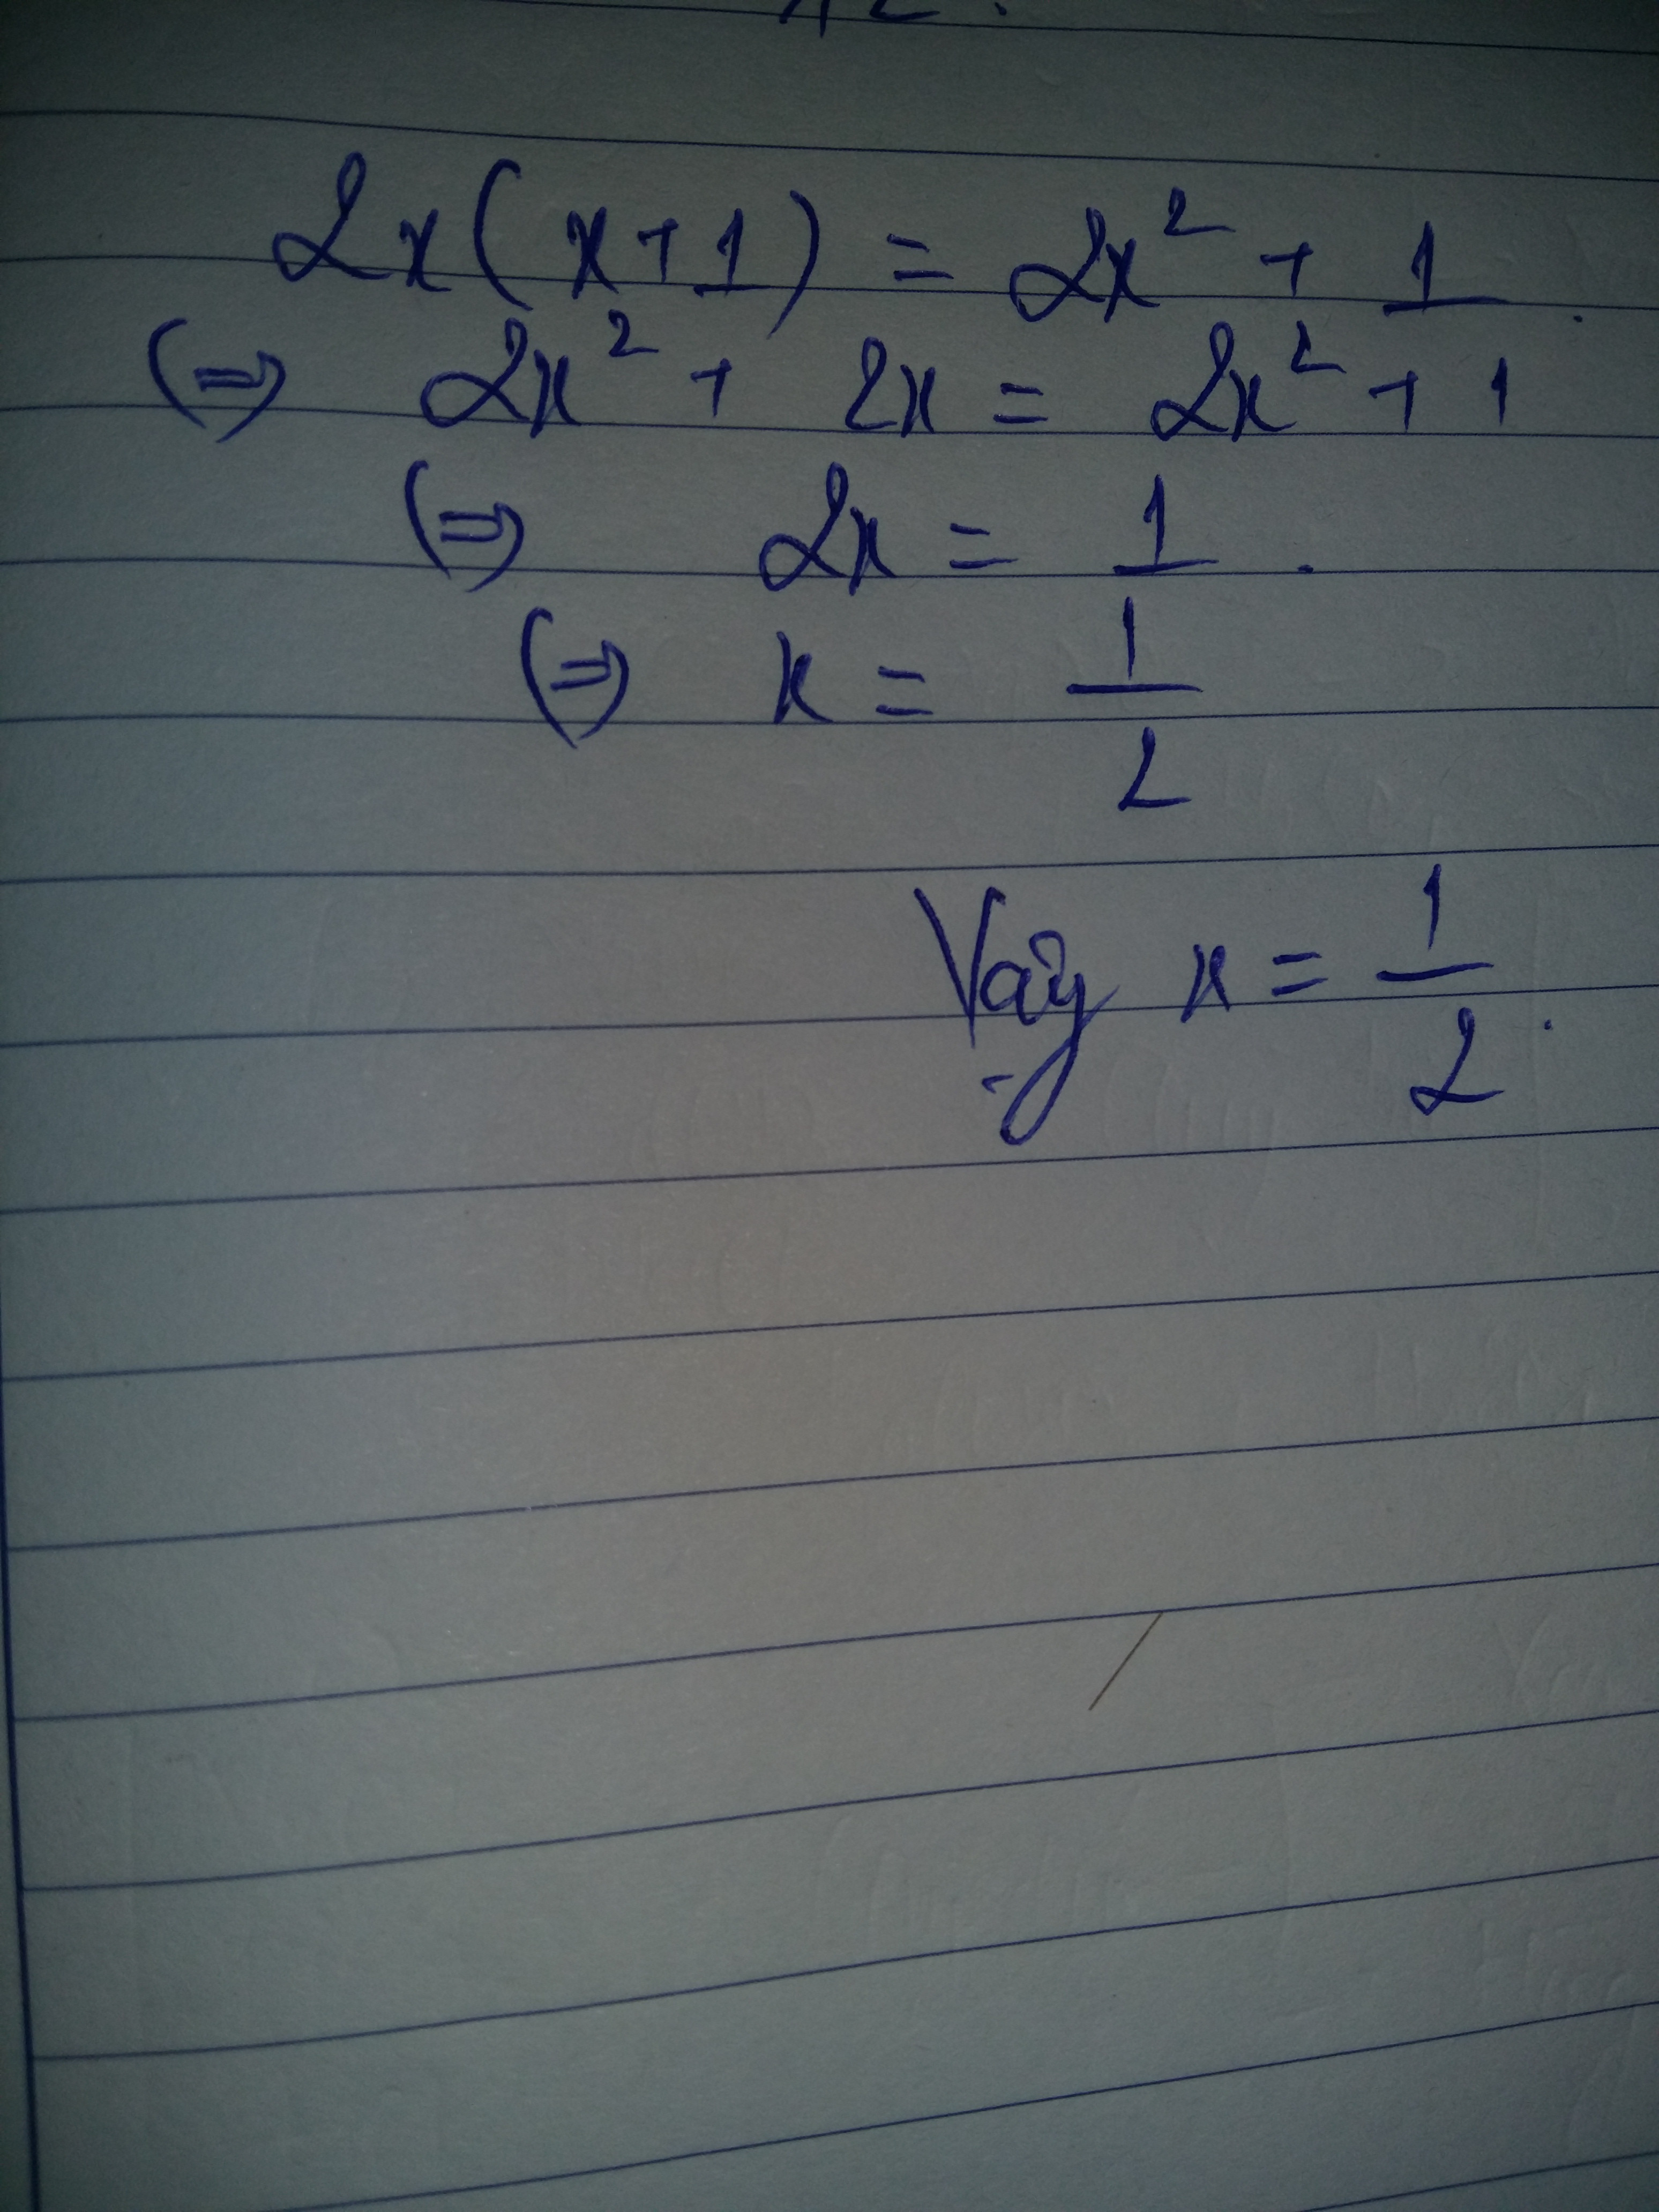 2x(x+1) = 2x² + 1.
(=) 2x² + 2x = 2x² + 1
(=) 2x = 1.
(=) x = 1/2
Vậy x = 1/2.